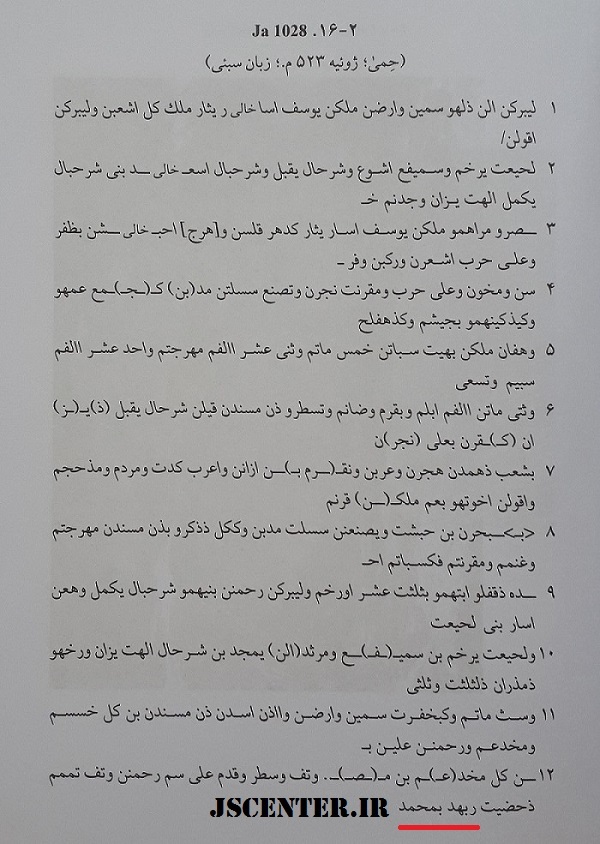 ۲-۱۶. Ja 1028
(حِمیٰ؛ ژوئیه ۵۲۳ م.؛ زبان سبئی)
۱ لیبرکن الن ذلهو سمین وارضن ملکن یوسف اسا خالی ر یثار ملك کل اشعبن ولیبرکن
اقولن/
۲ لحیعت یرخم وسمیفع اشوع وشرحال یقبل وشرحبال اسعـ خالی ـد بنی شرحبال
یکمل الهت یـزان وجدنم خـ
۳ ـصرو مراهمو ملکن یوسـف اسـار یثار کدهر قلسن و[هرج] احبـ خالی ـشن بظفر
وعلـی حرب اشـعرن ورکبن وفر ـ
۴ سن ومخون وعلی حرب ومقرنت نجرن وتصنع سسلتن مد(بن) کـ(ـجـ)ـمع عمهو
وکیذکینهمو بجیشم وکذهفلح
۵ وهفان ملکن بهیت سـباتن خمس ماتم وثنی عشـر االفم مهرجتم واحد عشـر االفم
سبیم وتسعی
۶ وثتی ماتن االفم ابلم وبقرم وضانم وتسطرو ذن مسندن قیلن شرحال یقبل (ذ)یـ(ـز)
ان (کـ)ـقرن بعلی (نجر)ن
۷ بشعب ذهمدن هجرن وعربن ونقـ(ـرم بـ)ـن ازانن واعرب کدت ومردم ومذحجم
واقولن اخوتهو بعم ملکـ(ـن) قرنم
۸ <بـ>ـبحرن بن حبشت ویصنعنن سسلت مدبن وککل ذذکرو بذن مسندن مهرجتم
وغنمم ومقرنتم فکسباتم احـ
۹ ـده ذقفلو ابتهمو بثلثت عشـر اورخم ولیبرکن رحمنن بنیهمو شرحبال یکمل وهعن
اسار بنی لحیعت
۱۰ ولحیعت یرخم بن سمیـ(ـفـ)ـع ومرثد(الن) یمجد بن شـرحال الهت یزان ورخهو
ذمذران ذلثلثت وثلثی
۱۱ وسـث ماتـم وکبخفـرت سـمین وارضـن وااذن اسدن ذن مسندن بن کل خسـسم
ومخدعـم ورحمنـن علیـن بـ
۱۲ ـن کل مخد(عـ)ـم بن مـ(ـصـ)ـ. وتف وسطر وقدم علی سم رحمنن وتف تممم
ذحضیت ربهد بمحمد
JSCENTER.IR